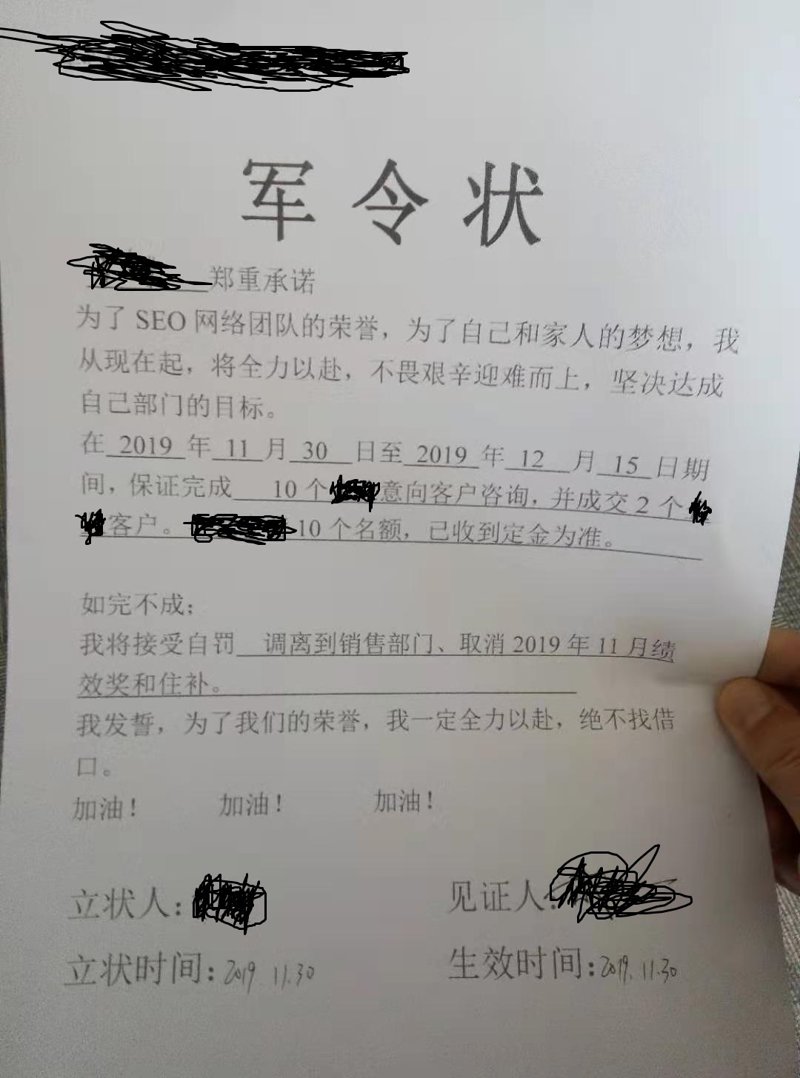 军令状
郑重承诺
为了 SEO 网络团队的荣誉，为了自己和家人的梦想，我
从现在起，将全力以赴，不畏艰辛迎难而上，坚决达成
自己部门的目标。
在 2019 年 11 月 30 日至 2019 年 12 月 15 日期
间，保证完成 10 个 意向客户咨询，并成交 2 个
客户。 10 个名额，已收到定金为准。
如完不成；
我将接受自罚 调离到销售部门、取消 2019 年 11 月绩
效奖和住补。
我发誓，为了我们的荣誉，我一定全力以赴，绝不找借
口。
加油！ 加油！ 加油！
立状人： 见证人：
立状时间：2019 11.30 生效时间：2019. 11.30